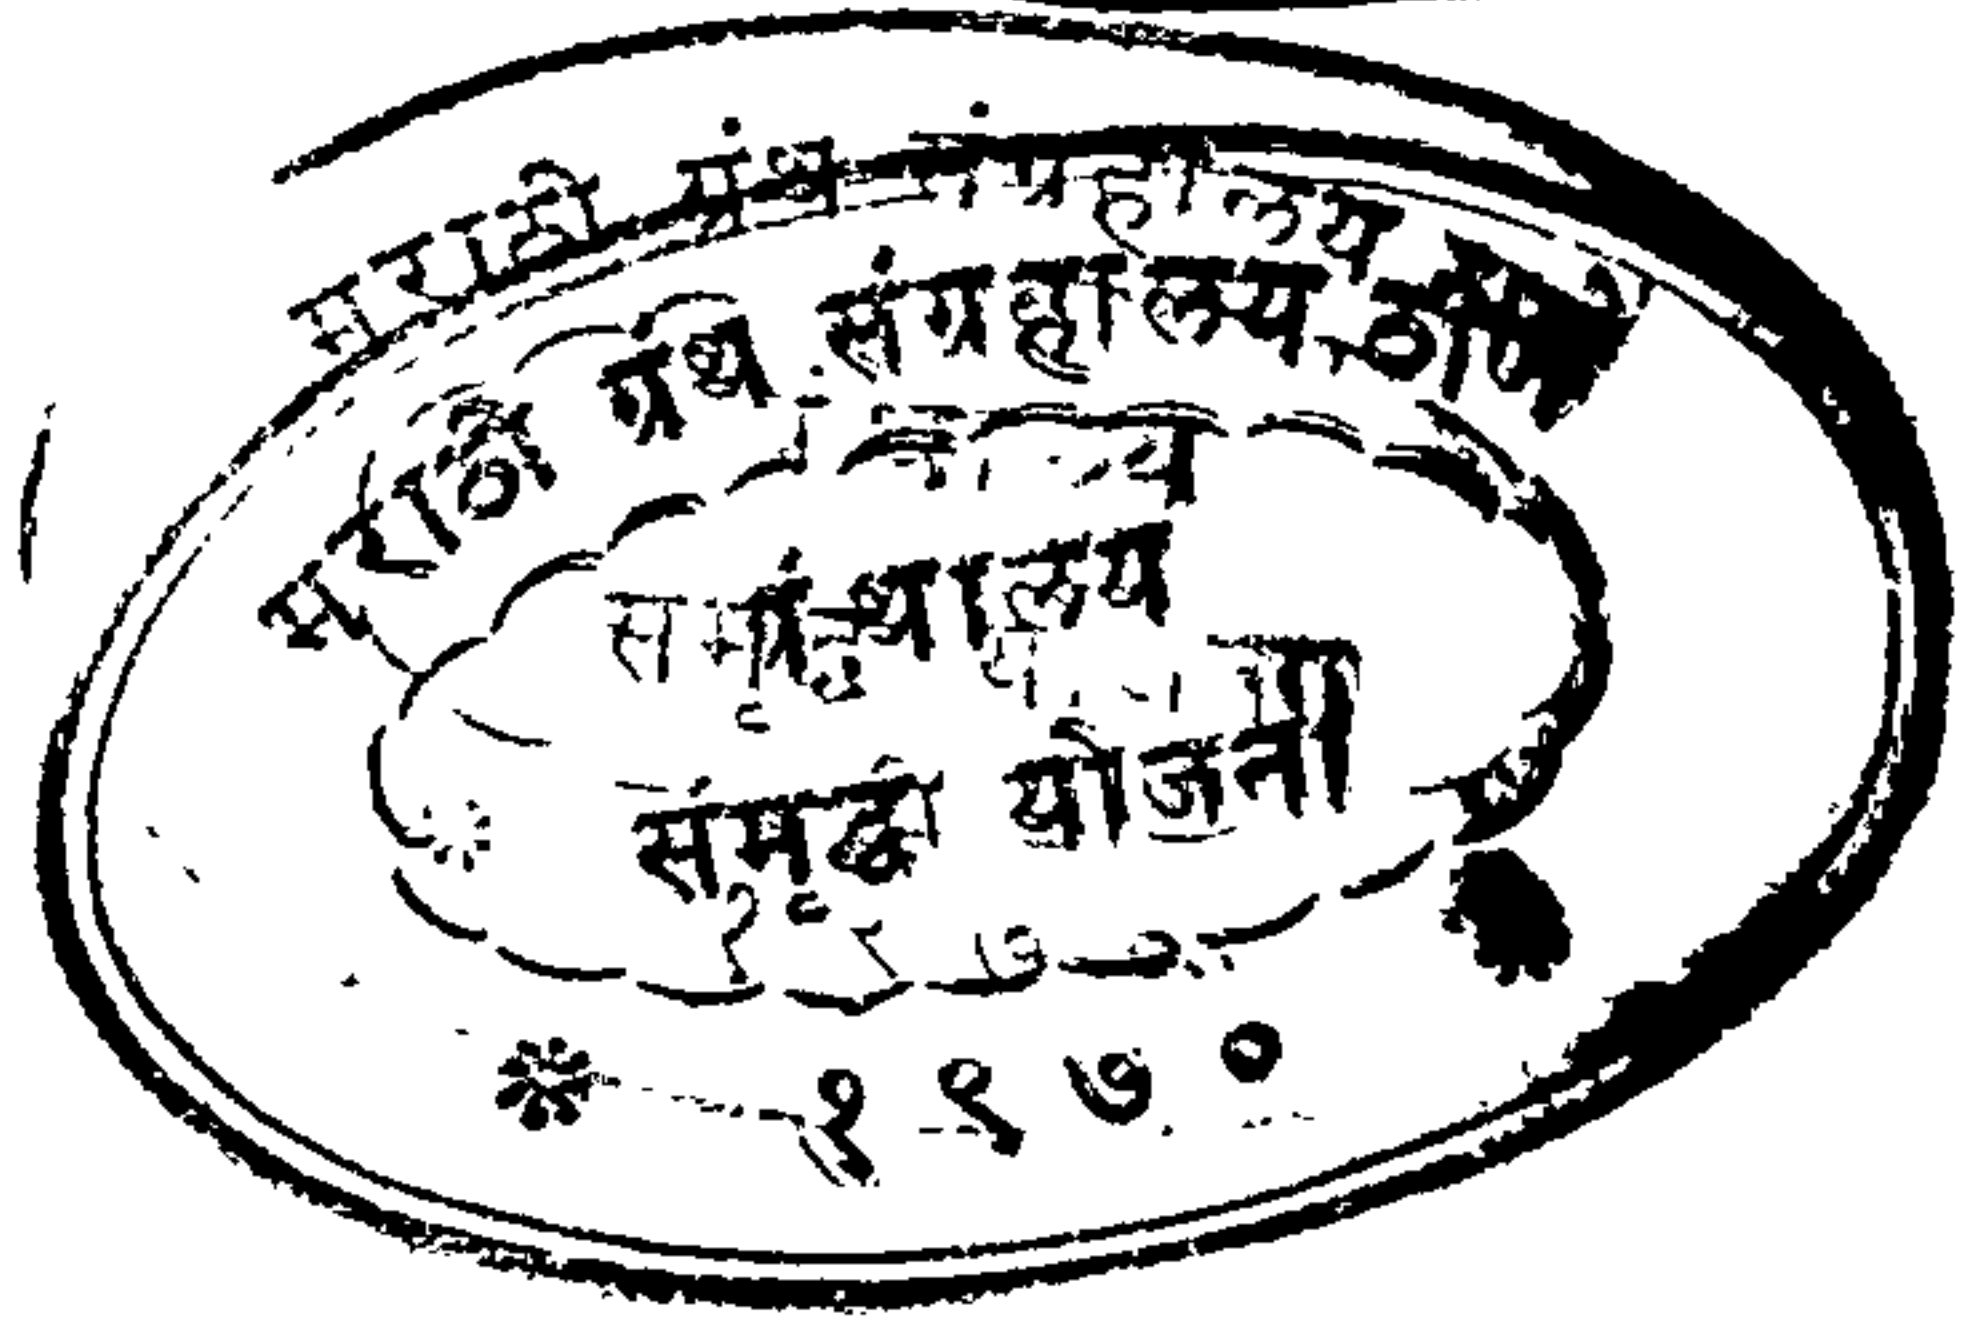 मराठी ग्रंथ संग्रहालय
मराठी ग्रंथ संग्रहालय, ठाणे
ग्रंथालय
संमृद्धी योजना
१९७०
१९७०